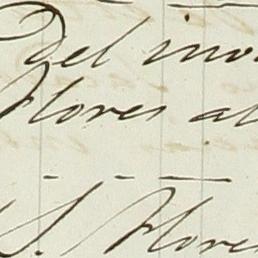 Del inv
Flores al
S. Flores